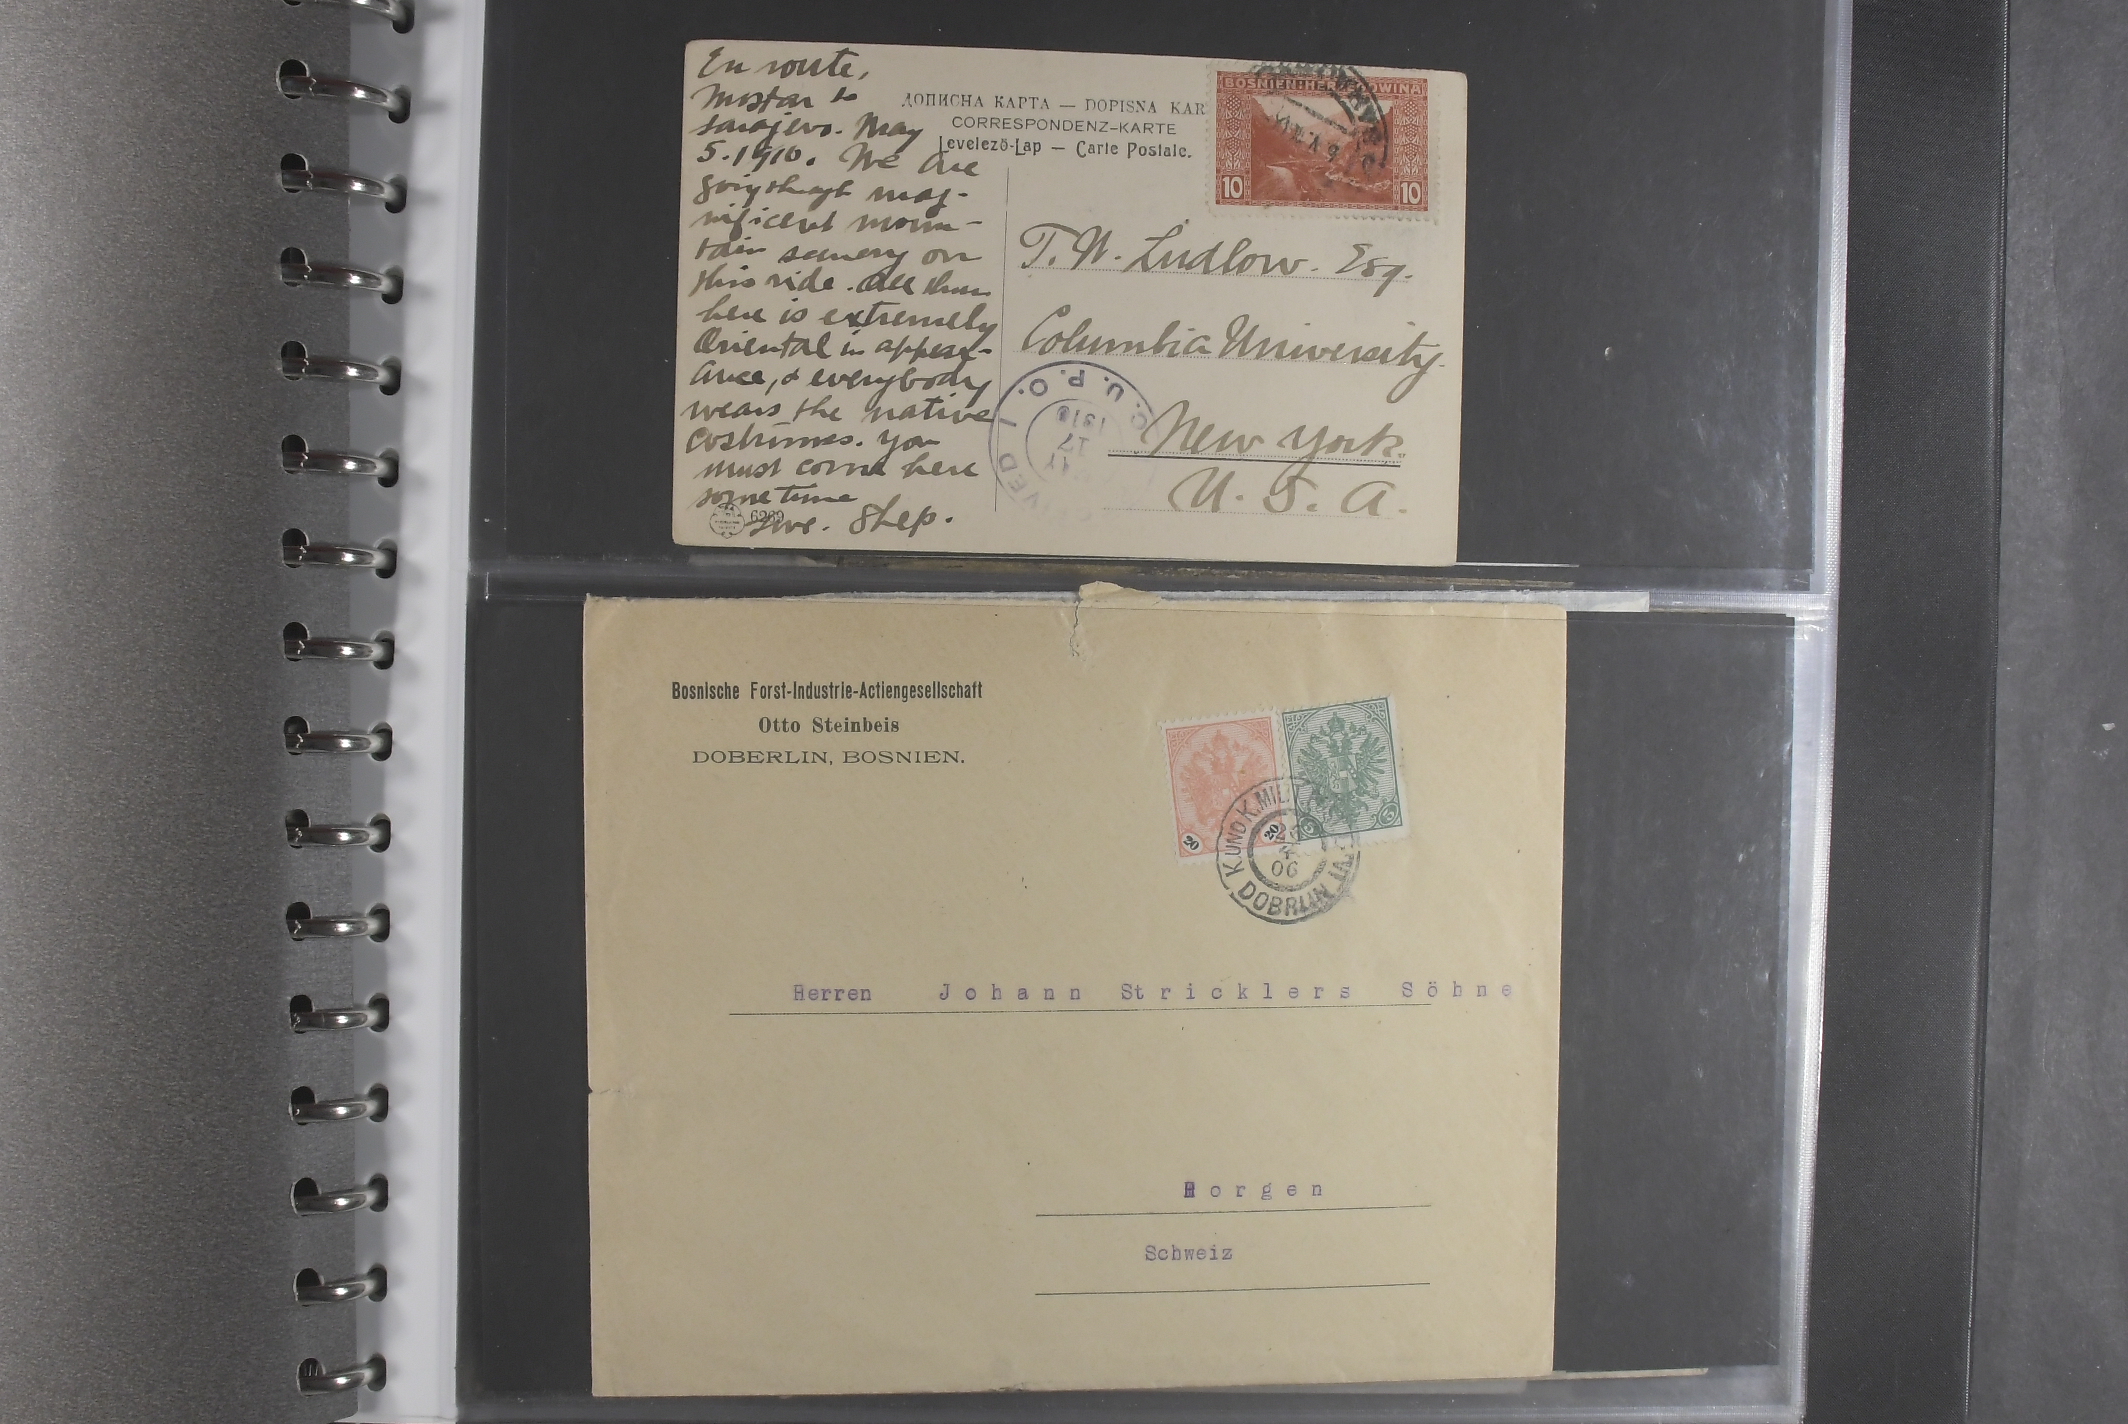 En route,
Mostar to
Sarajevo. May
5. 1910. We are
going through mag-
nificent moun-
tain scenery on
this ride. All thru
here is extremely
Oriental in appear-
ance, & everybody
wears the native
costumes. You
must come here
sometime
Shep.
6269
ДОПИСНА КАРТА — DOPISNA KAR
CORRESPONDENZ-KARTE
Levelező-Lap — Carte Postale.
BOSNIEN-HERCEGOWINA
10 10
T. W. Ludlow. Esq.
Columbia University.
New York.
U. S. A.
C. U. P. O.
17
1910
Bosnische Forst-Industrie-Actiengesellschaft
Otto Steinbeis
DOBERLIN, BOSNIEN.
20 20
5 5
K. UND K. MIL
06
DOBRLIN
Herren Johann Stricklers Söhne
Horgen
Schweiz